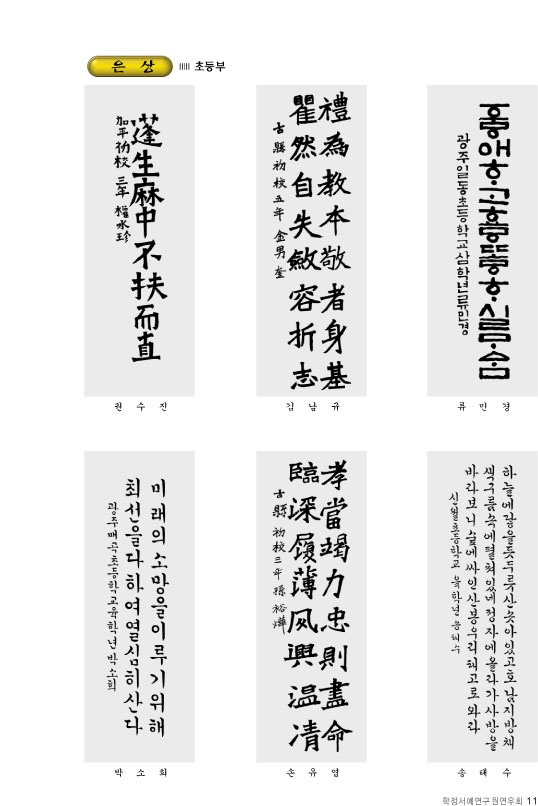 은 상 초등부
蓬生麻中不扶而直
加平初校 三年 權水珍
권 수 진
禮為教本敬者身基
瞿然自失斂容折志
古縣初校五年 金男奎
김 남 규
광주일동초등학교삼학년류민경
류 민 경
미래의소망을이루기위해
최선을다하여열심히산다
광주매곡초등학교육학년박소희
박 소 희
孝當竭力忠則盡命
臨深履薄夙興温凊
古縣初校三年 孫裕燁
손 유 엽
하늘에닿을듯두륵산솟아있고호남지방채
색구름속에펼쳐있네정자에올라가사방을
바라보니숲에싸인산봉우리채고로와라
신월초등학교 육학년 송태수
송 태 수
학정서예연구원연우회 11